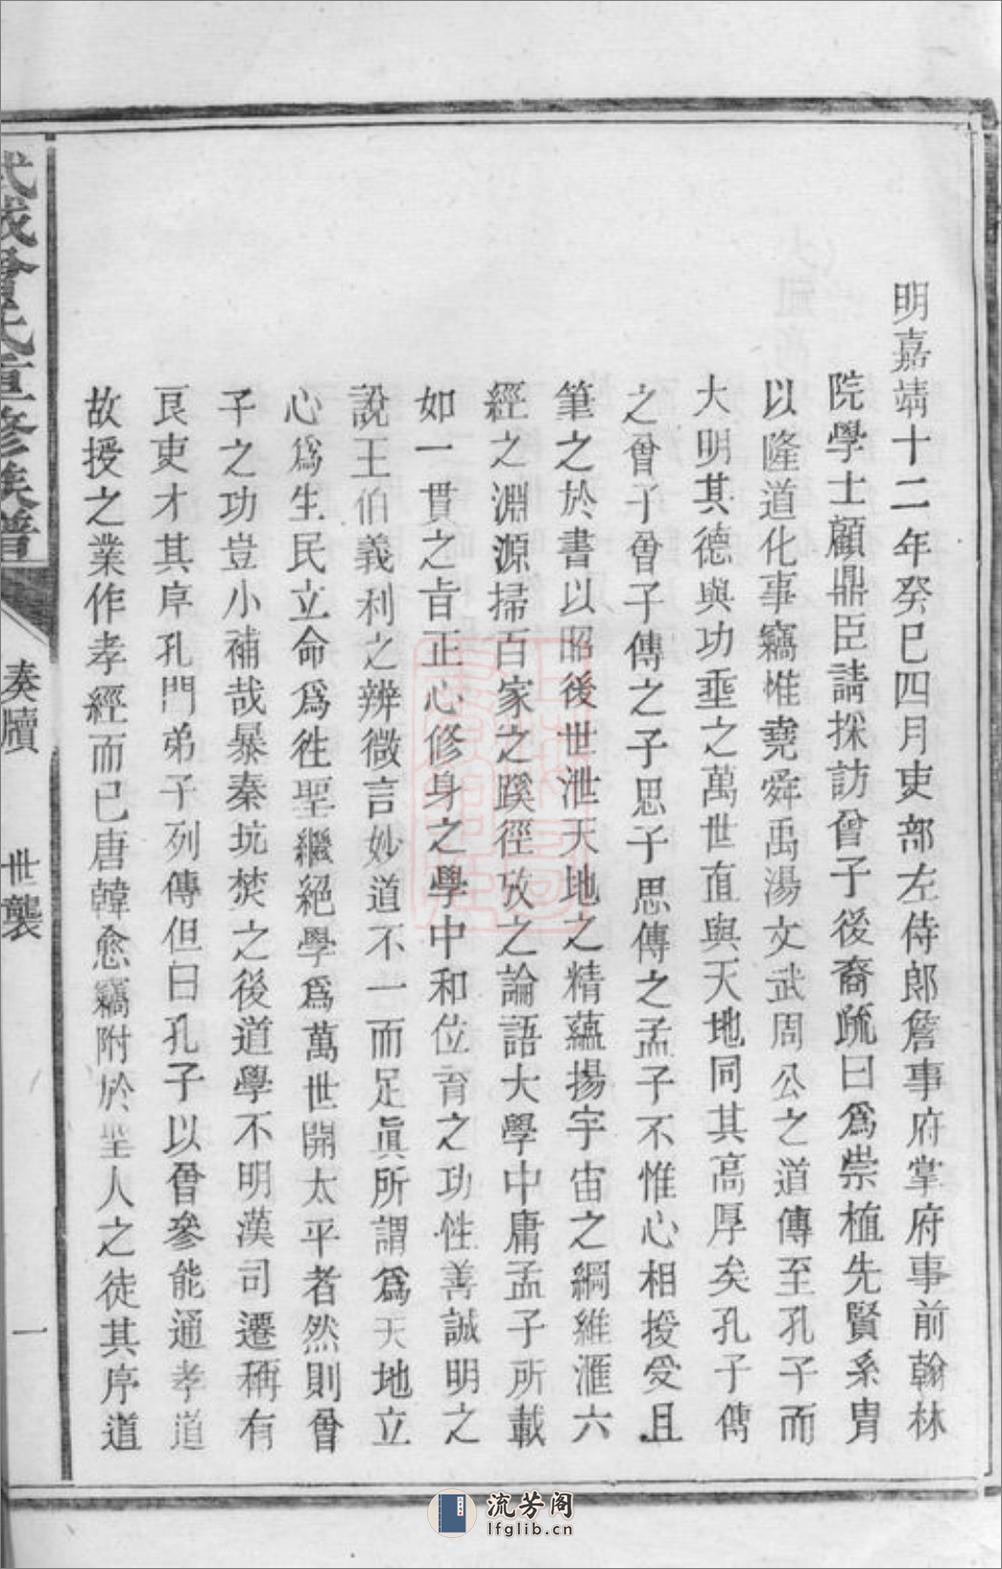 明嘉靖十二年癸巳四月吏部左侍郎詹事府掌府事前翰林
院學士顧鼎臣請採訪曾子後裔疏曰爲崇植先賢系胄
以隆道化事竊惟堯舜禹湯文武周公之道傳至孔子而
大明其德與功垂之萬世直與天地同其高厚矣孔子傳
之曾子曾子傳之子思子思傳之孟子不惟心相授受且
筆之於書以昭後世泄天地之精蘊揚宇宙之綱維滙六
經之淵源掃百家之蹊徑攷之論語大學中庸孟子所載
如一貫之旨正心修身之學中和位育之功性善誠明之
說王伯義利之辨微言妙道不一而足眞所謂爲天地立
心爲生民立命爲徃聖繼絕學爲萬世開太平者然則曾
子之功豈小補哉暴秦坑焚之後道學不明漢司遷稱有
良吏才其序孔門弟子列傳但曰孔子以曾參能通孝道
故授之業作孝經而已唐韓愈竊附於聖人之徒其序道
武城曾氏重修族譜
奏牘 世襲
一
流芳阁
lfglib.cn